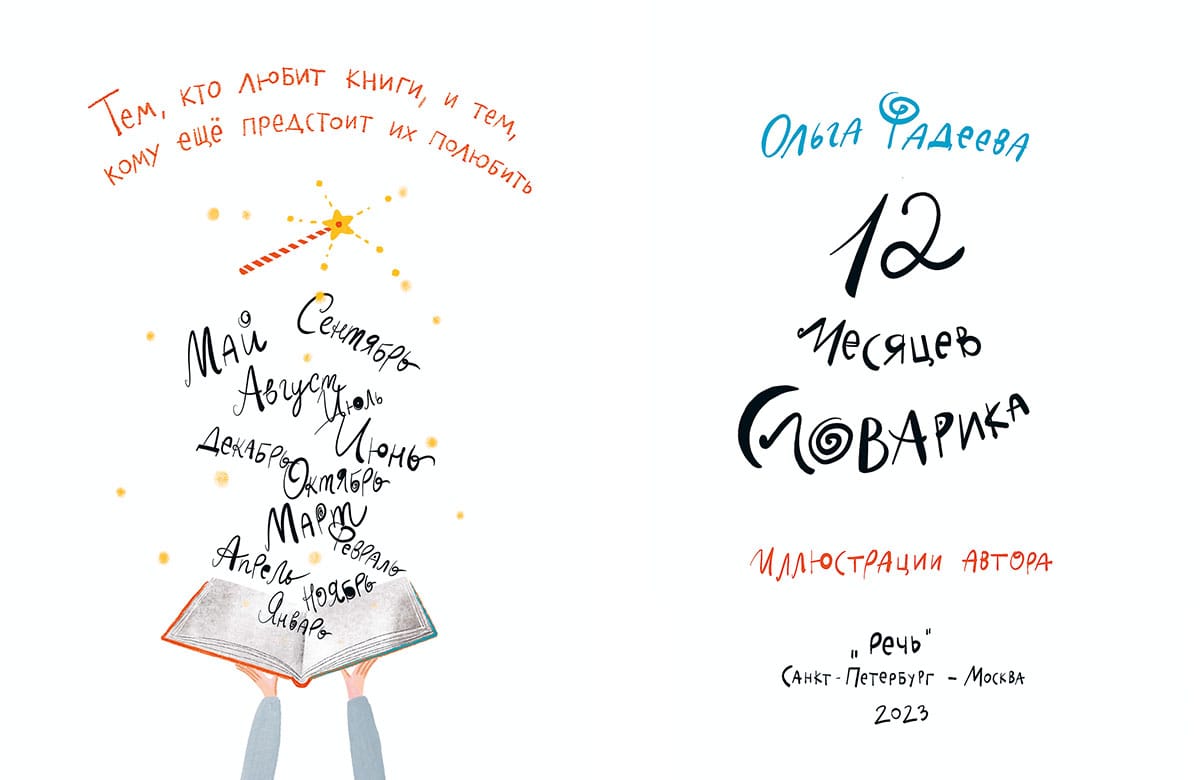 Тем, кто любит книги, и тем,
кому ещё предстоит их полюбить
Май
Сентябрь
Август
Июль
Декабрь
Июнь
Октябрь
Март
Февраль
Апрель
Ноябрь
Январь
Ольга Фадеева
12
Месяцев
Словарика
Иллюстрации автора
„Речь“
Санкт-Петербург – Москва
2023